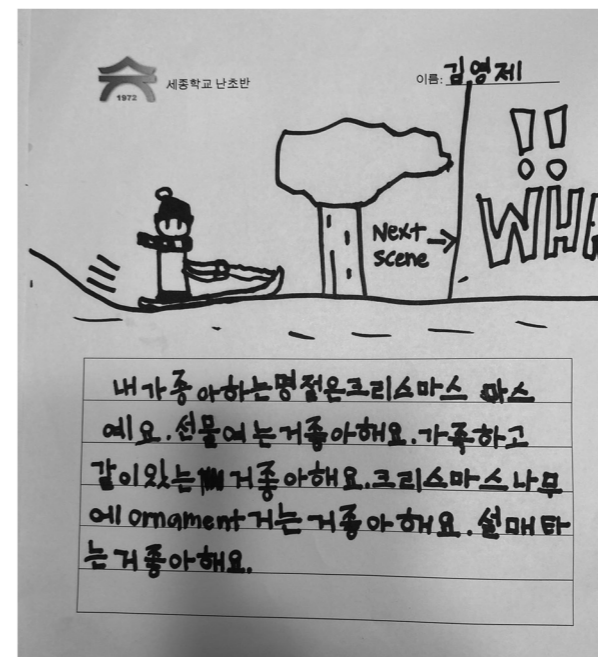 1972
세종학교 난초반
이름: 김영제
Next
scene
!!
WHA
내가좋아하는명절은크리스마스 마스
예요.선물여는거좋아해요.가족하고
같이있는 거좋아해요.크리스마스나무
에ornament거는거좋아해요.썰매타
는거좋아해요.